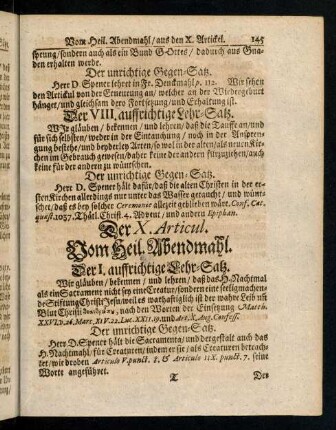 Vom Heil. Abendmahl/ aus den X. Artikel. 145
sprung/ sondern auch als ein Bund GOttes/ dadurch aus Gna-
den erhalten werde.
Der unrichtige Gegen-Satz.
Herr D. Spener lehret in Fr. Denckmahl p. 112. Wir sehen
den Articul von der Erneuerung an/ welcher an der Wiedergeburt
hänget/ und gleichsam dero Fortsetzung und Erhaltung ist.
Der VIII. auffrichtige Lehr-Satz.
Wir gläuben/ bekennen/ und lehren/ daß die Tauffe an/ und
für sich selbsten/ weder in der Eintauchung/ noch in der Anspren-
gung bestehe/ und beyderley Arten/ so wol in der alten/ als neuen Kir-
chen im Gebrauch gewesen/ daher keine der andern fürzuziehen/ auch
keine für der andern zu wünschen.
Der unrichtige Gegen-Satz.
Herr D. Spener hält dafür/ daß die alten Christen in der er-
sten Kirchen allerdings nur unter das Wasser getaucht/ und wünt-
schet/ daß es bey solcher Ceremonie allezeit geblieben wäre. Conf. Cat.
quæst. 1037. Thätl. Christ. 4. Advent/ und andern Epiphan.
Der X. Articul.
Vom Heil. Abendmahl.
Der I. auffrichtige Lehr-Satz.
Wir gläuben/ bekennen/ und lehren/ daß das H. Nachtmal
als ein Sacrament nicht sey eine Creatur/ sondern eine seeligmachen-
de Stifftung Christi Jesu/ weil es warhafftiglich ist der wahre Leib uñ
Blut Christi nach den Worten der Einsetzung Matth.
XXVI. v. 26. Marc. XIV. 22. Luc. XXII. 19. und Art. X. Aug. Confess.
Der unrichtige Gegen-Satz.
Herr D. Spener hält die Sacramenta/ und dergestalt auch das
H. Nachtmahl/ für Creaturen/ indem er sie/ als Creaturen betrach-
tet/ wie droben Articulo V. punct. 8. & Articulo IIX. punct. 7. seine
Worte angeführet.
T Der